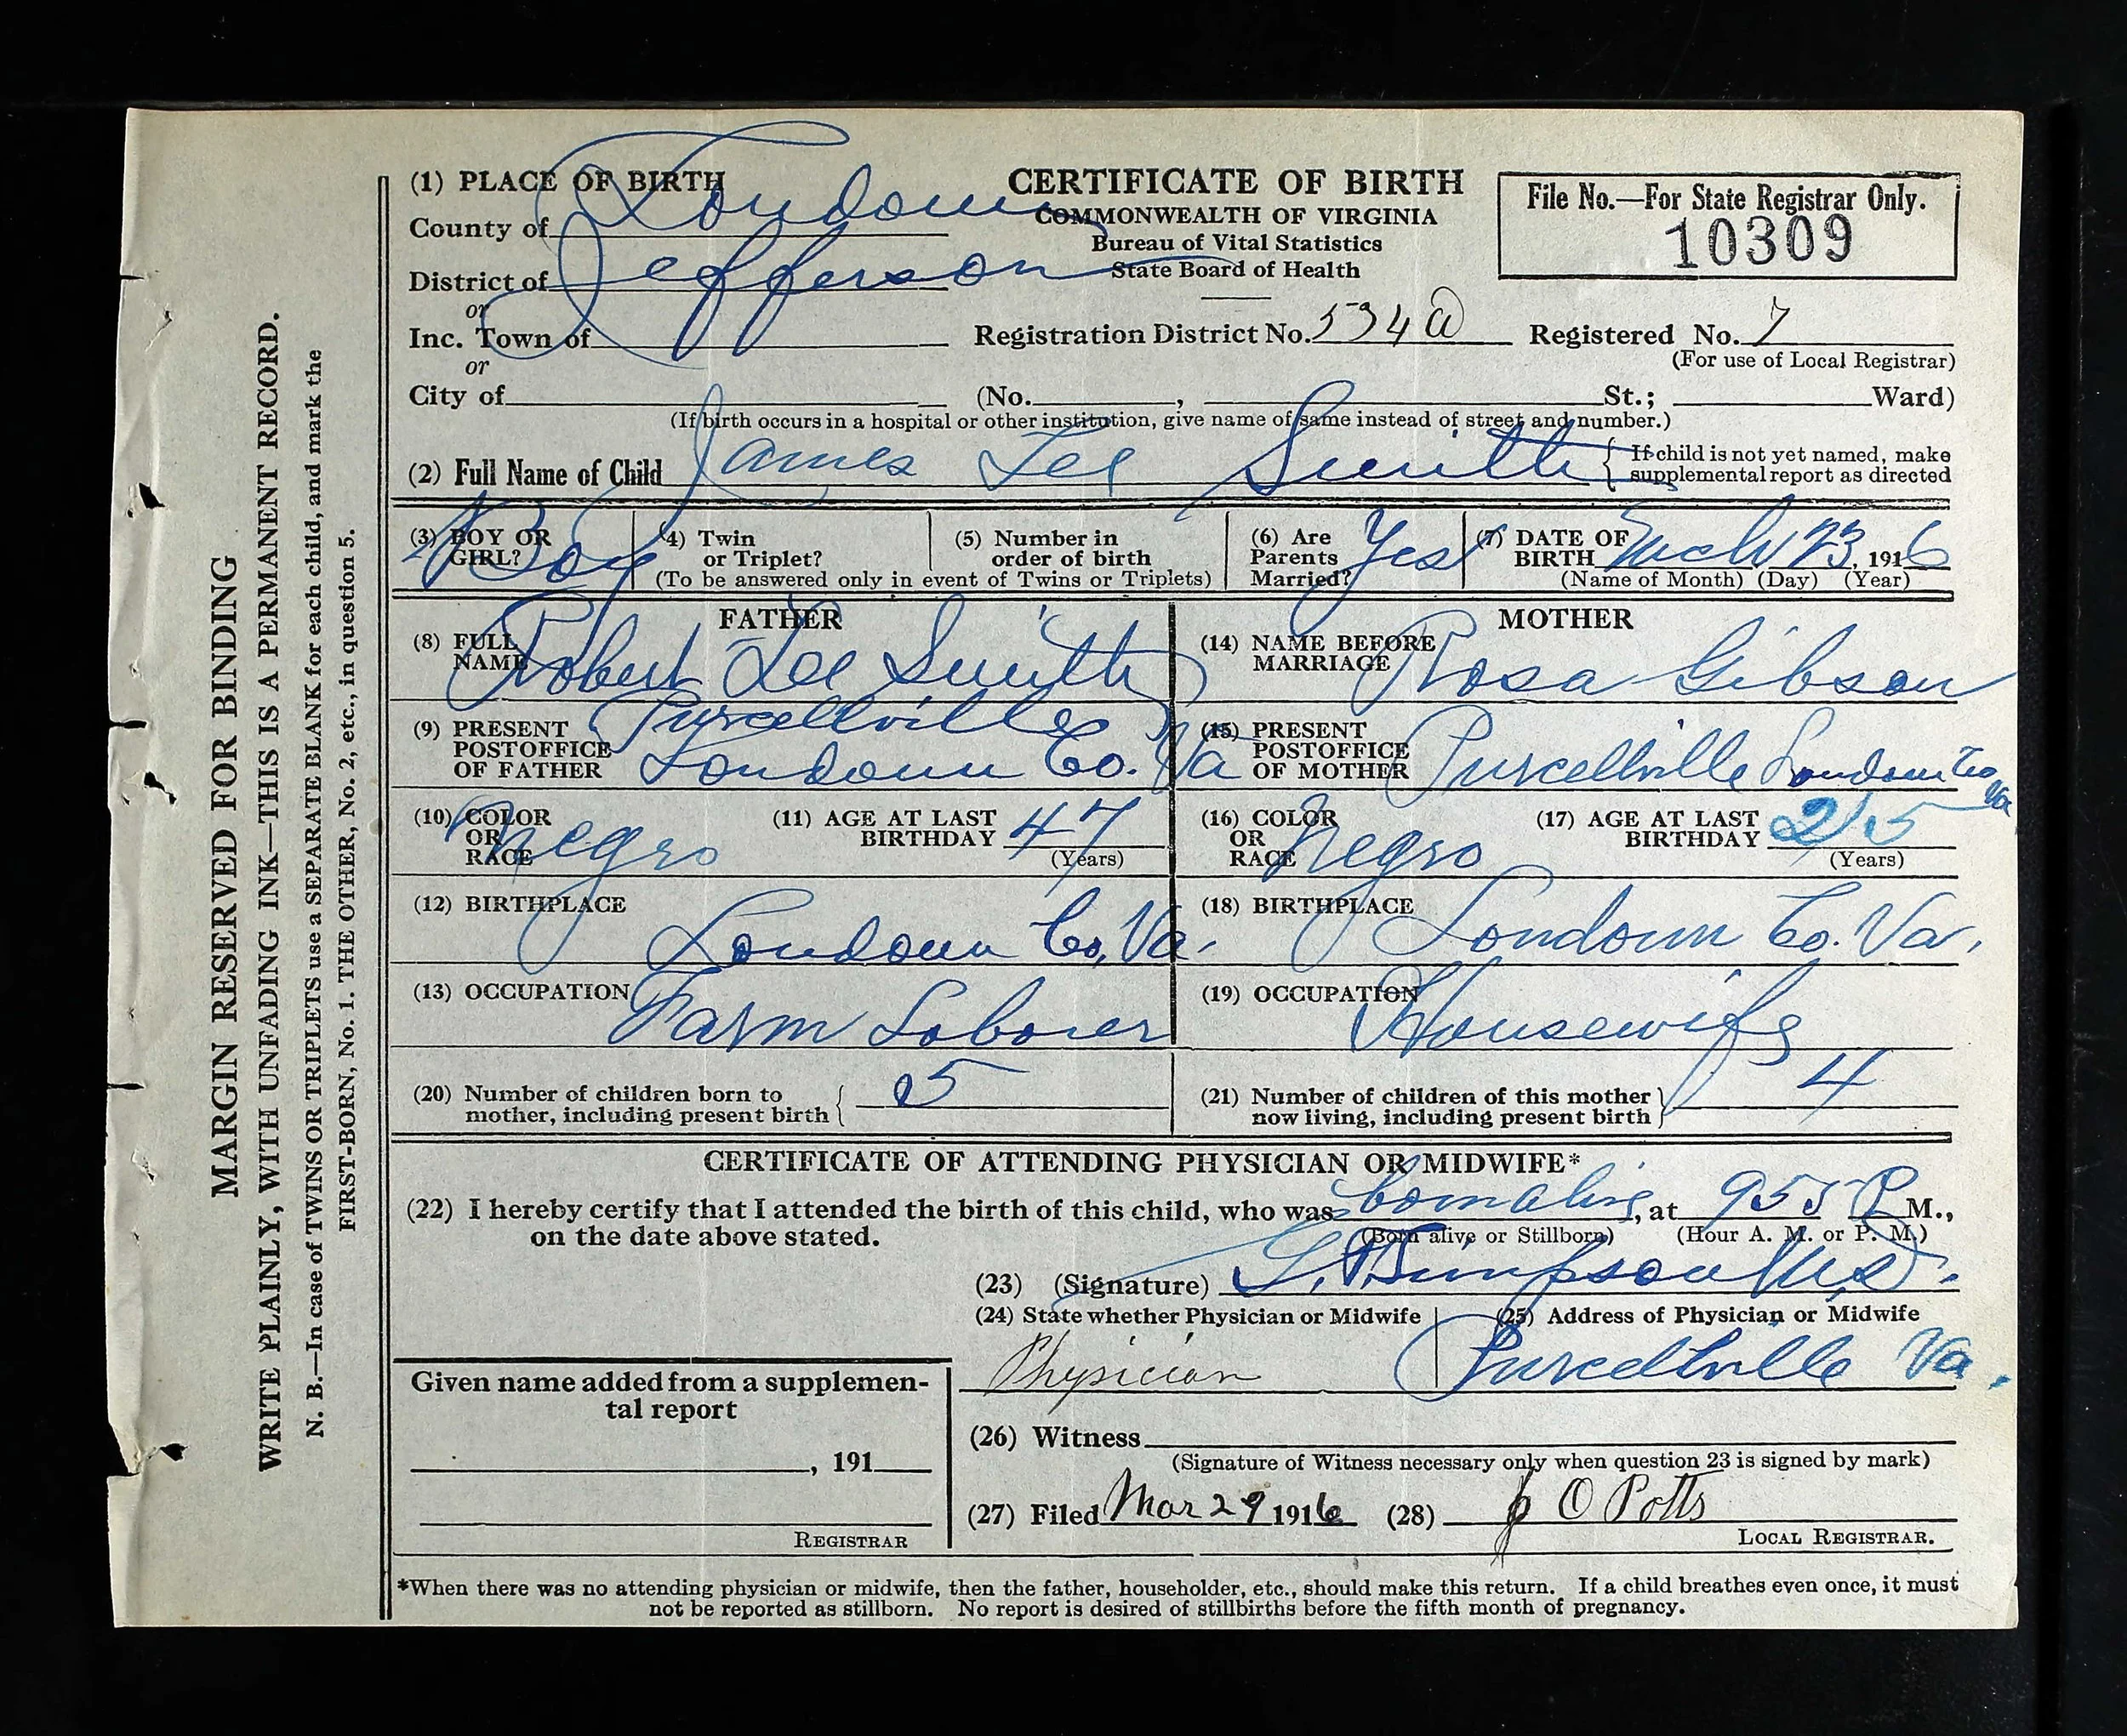 MARGIN RESERVED FOR BINDING
WRITE PLAINLY, WITH UNFADING INK—THIS IS A PERMANENT RECORD.
N. B.—In case of TWINS OR TRIPLETS use a SEPARATE BLANK for each child, and mark the
FIRST-BORN, No. 1. THE OTHER, No. 2, etc., in question 5.
(1) PLACE OF BIRTH
County of Loudoun
District of Jefferson
or
Inc. Town of
or
City of
CERTIFICATE OF BIRTH
COMMONWEALTH OF VIRGINIA
Bureau of Vital Statistics
State Board of Health
File No.—For State Registrar Only.
10309
Registration District No. 534a Registered No. 7
(For use of Local Registrar)
(No. , St.; Ward)
(If birth occurs in a hospital or other institution, give name of same instead of street and number.)
(2) Full Name of Child James Lee Smith { If child is not yet named, make
supplemental report as directed
(3) BOY OR
GIRL? Boy
(4) Twin
or Triplet?
(5) Number in
order of birth
(To be answered only in event of Twins or Triplets)
(6) Are
Parents
Married? Yes
(7) DATE OF
BIRTH Mch 23, 1916
(Name of Month) (Day) (Year)
FATHER
(8) FULL
NAME Robert Lee Smith
(9) PRESENT
POSTOFFICE
OF FATHER Purcellville
Loudoun Co. Va
(10) COLOR
OR
RACE Negro
(11) AGE AT LAST
BIRTHDAY 47
(Years)
(12) BIRTHPLACE
Loudoun Co. Va.
(13) OCCUPATION
Farm Laborer
MOTHER
(14) NAME BEFORE
MARRIAGE Rosa Gibson
(15) PRESENT
POSTOFFICE
OF MOTHER Purcellville Loudoun Co
Va
(16) COLOR
OR
RACE Negro
(17) AGE AT LAST
BIRTHDAY 25
(Years)
(18) BIRTHPLACE
Loudoun Co. Va.
(19) OCCUPATION
Housewife
(20) Number of children born to
mother, including present birth { 5
(21) Number of children of this mother
now living, including present birth } 4
CERTIFICATE OF ATTENDING PHYSICIAN OR MIDWIFE*
(22) I hereby certify that I attended the birth of this child, who was born alive, at 955 P M.,
on the date above stated. (Born alive or Stillborn) (Hour A. M. or P. M.)
(23) (Signature) Simpson M.D.
(24) State whether Physician or Midwife
Physician
(25) Address of Physician or Midwife
Purcellville Va.
Given name added from a supplemen-
tal report
, 191
REGISTRAR
(26) Witness
(Signature of Witness necessary only when question 23 is signed by mark)
(27) Filed Mar 29 1916 (28) O Potts
LOCAL REGISTRAR.
*When there was no attending physician or midwife, then the father, householder, etc., should make this return. If a child breathes even once, it must
not be reported as stillborn. No report is desired of stillbirths before the fifth month of pregnancy.